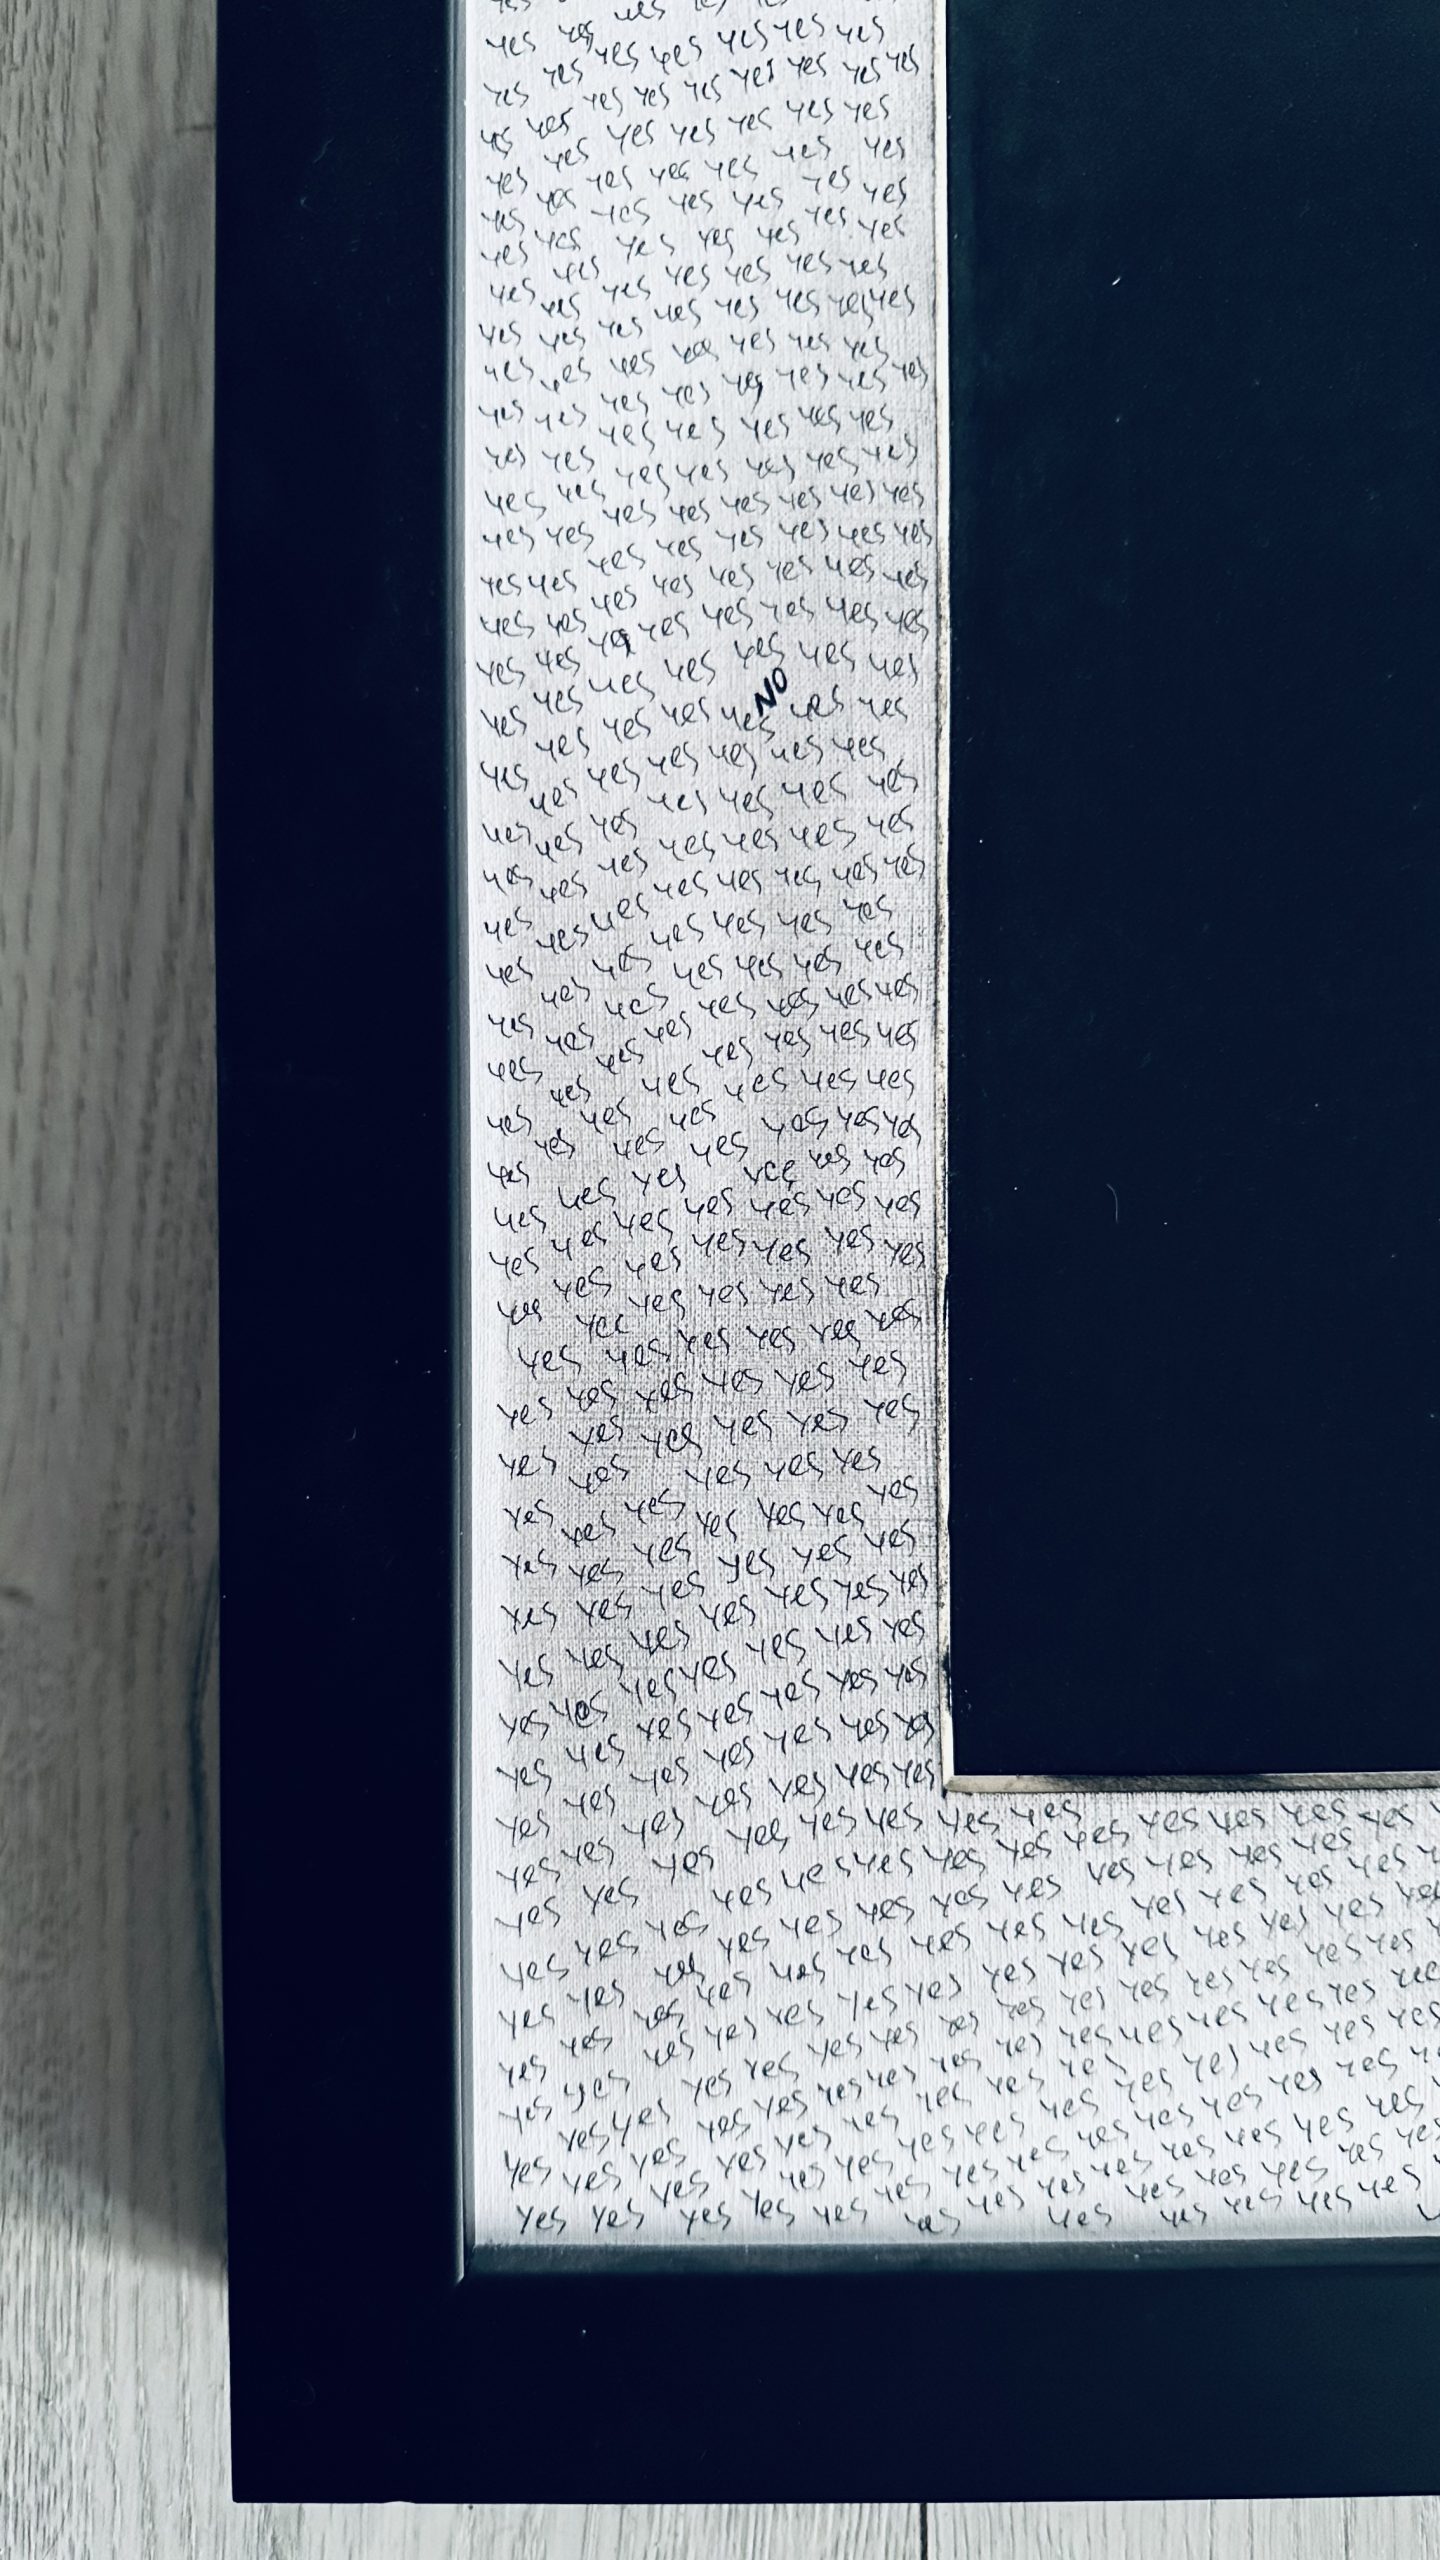 yes yes yes yes yes
yes yes yes yes yes yes yes
yes yes yes yes yes yes yes yes yes
yes yes yes yes yes yes yes
yes yes yes yes yes yes yes
yes yes yes yes yes yes yes
yes yes yes yes yes yes yes
yes yes yes yes yes yes yes
yes yes yes yes yes yes yes yes
yes yes yes yes yes yes yes
yes yes yes yes yes yes yes yes
yes yes yes yes yes yes yes
yes yes yes yes yes yes yes
yes yes yes yes yes yes yes yes
yes yes yes yes yes yes yes yes
yes yes yes yes yes yes yes yes
yes yes yes yes yes yes yes yes
yes yes yes yes yes yes yes
NO
yes yes yes yes yes yes yes
yes yes yes yes yes yes yes
yes yes yes yes yes yes yes
yes yes yes yes yes yes yes
yes yes yes yes yes yes yes yes
yes yes yes yes yes yes yes
yes yes yes yes yes yes yes
yes yes yes yes yes yes yes
yes yes yes yes yes yes yes
yes yes yes yes yes yes
yes yes yes yes yes yes yes
yes yes yes yes yes yes yes
yes yes yes yes yes yes yes
yes yes yes yes yes yes yes
yes yes yes yes yes yes
yes yes yes yes yes yes
yes yes yes yes yes yes
yes yes yes yes yes yes
yes yes yes yes yes
yes yes yes yes yes yes yes
yes yes yes yes yes yes
yes yes yes yes yes yes yes
yes yes yes yes yes yes yes
yes yes yes yes yes yes yes
yes yes yes yes yes yes yes
yes yes yes yes yes yes yes
yes yes yes yes yes yes yes yes yes yes yes yes yes
yes yes yes yes yes yes yes yes yes yes yes yes
yes yes yes yes yes yes yes yes yes yes yes yes
yes yes yes yes yes yes yes yes yes yes yes yes yes
yes yes yes yes yes yes yes yes yes yes yes yes yes
yes yes yes yes yes yes yes yes yes yes yes yes yes yes
yes yes yes yes yes yes yes yes yes yes yes yes yes yes
yes yes yes yes yes yes yes yes yes yes yes yes yes
yes yes yes yes yes yes yes yes yes yes yes yes yes yes
yes yes yes yes yes yes yes yes yes yes yes yes yes